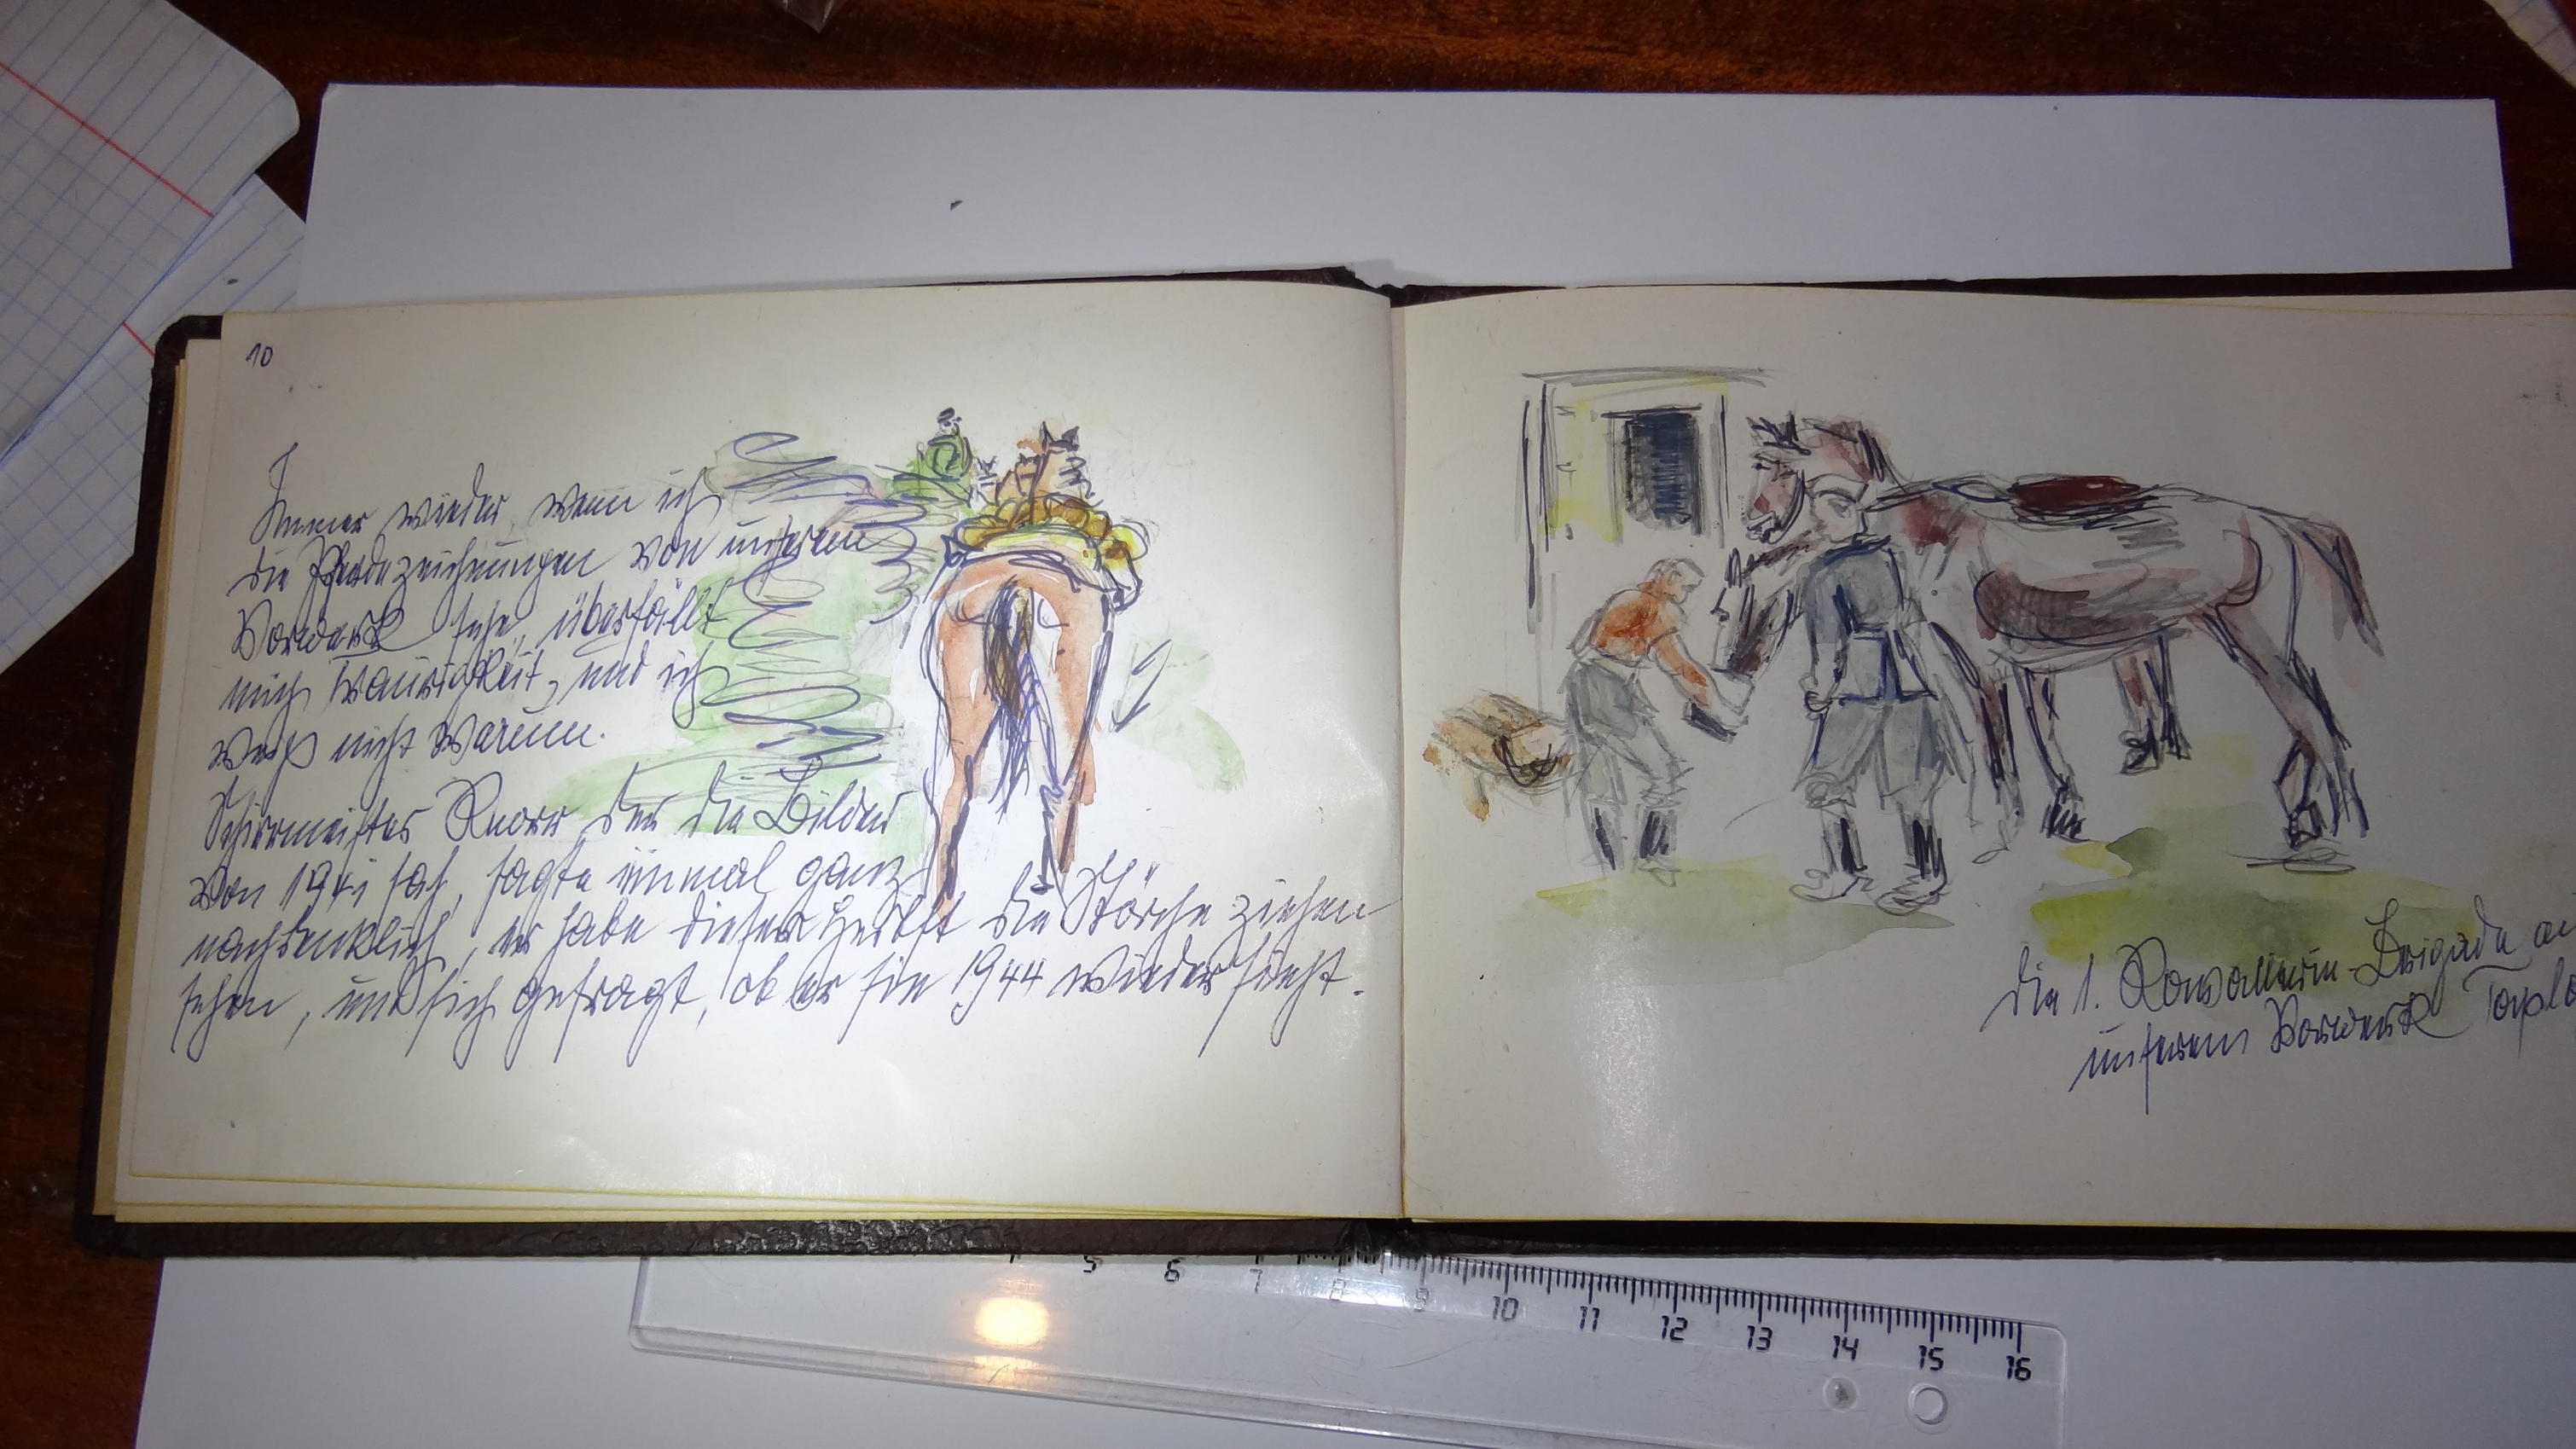 10
Immer wieder, wenn ich
die Pferdezeichnungen von unserem
Vorwerk sehe, überfällt
mich Traurigkeit, und ich
weiß nicht warum.
Schirrmeister Knorr der die Bilder
von 1941 sah, sagte einmal ganz
nachdenklich, er habe diesen Herbst die Störche ziehen
sehen, und sich gefragt, ob er sie 1944 wieder sieht.
Die 1. Kavallerie-Brigade au
unserem Vorwerk
5 6 7 8 9 10 11 12 13 14 15 16